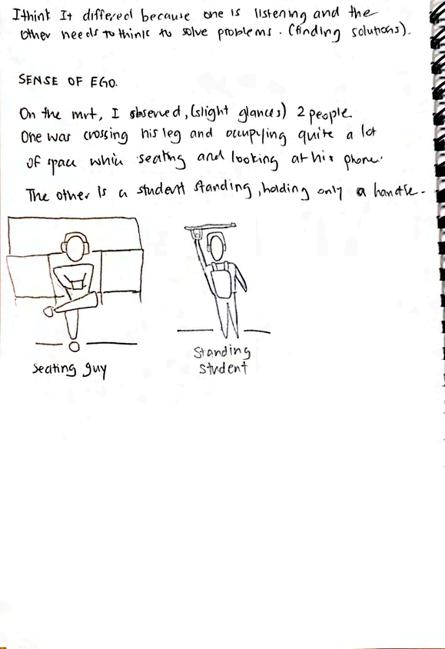 I think It differed because one is listening and the
other needs to think to solve problems. (finding solutions).
SENSE OF EGO.
On the mrt, I observed, (slight glances) 2 people.
One was crossing his leg and occupying quite a lot
of space while seating and looking at his phone.
The other is a student standing, holding only a handle.
seating guy
Standing
student